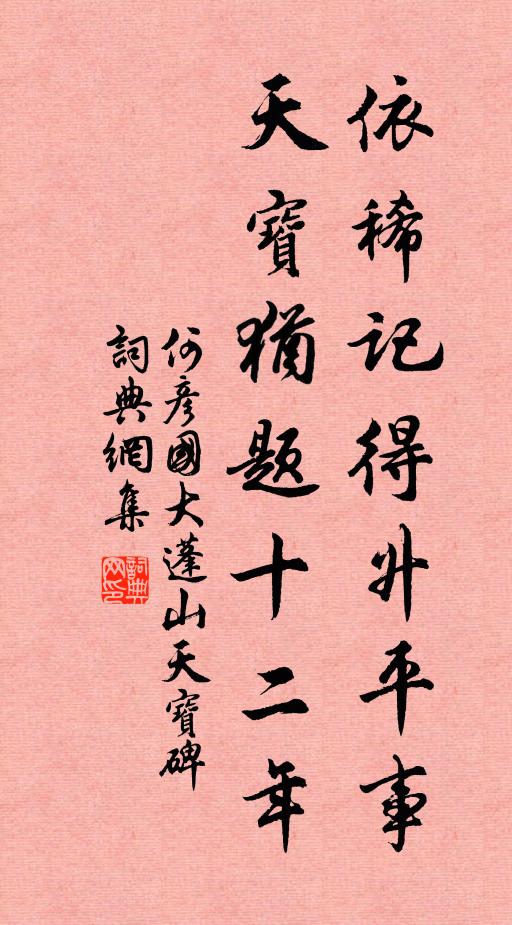 依稀記得升平事
天寶猶題十二年
何彥國大蓬山天寶碑
詞典網集
詞典网印